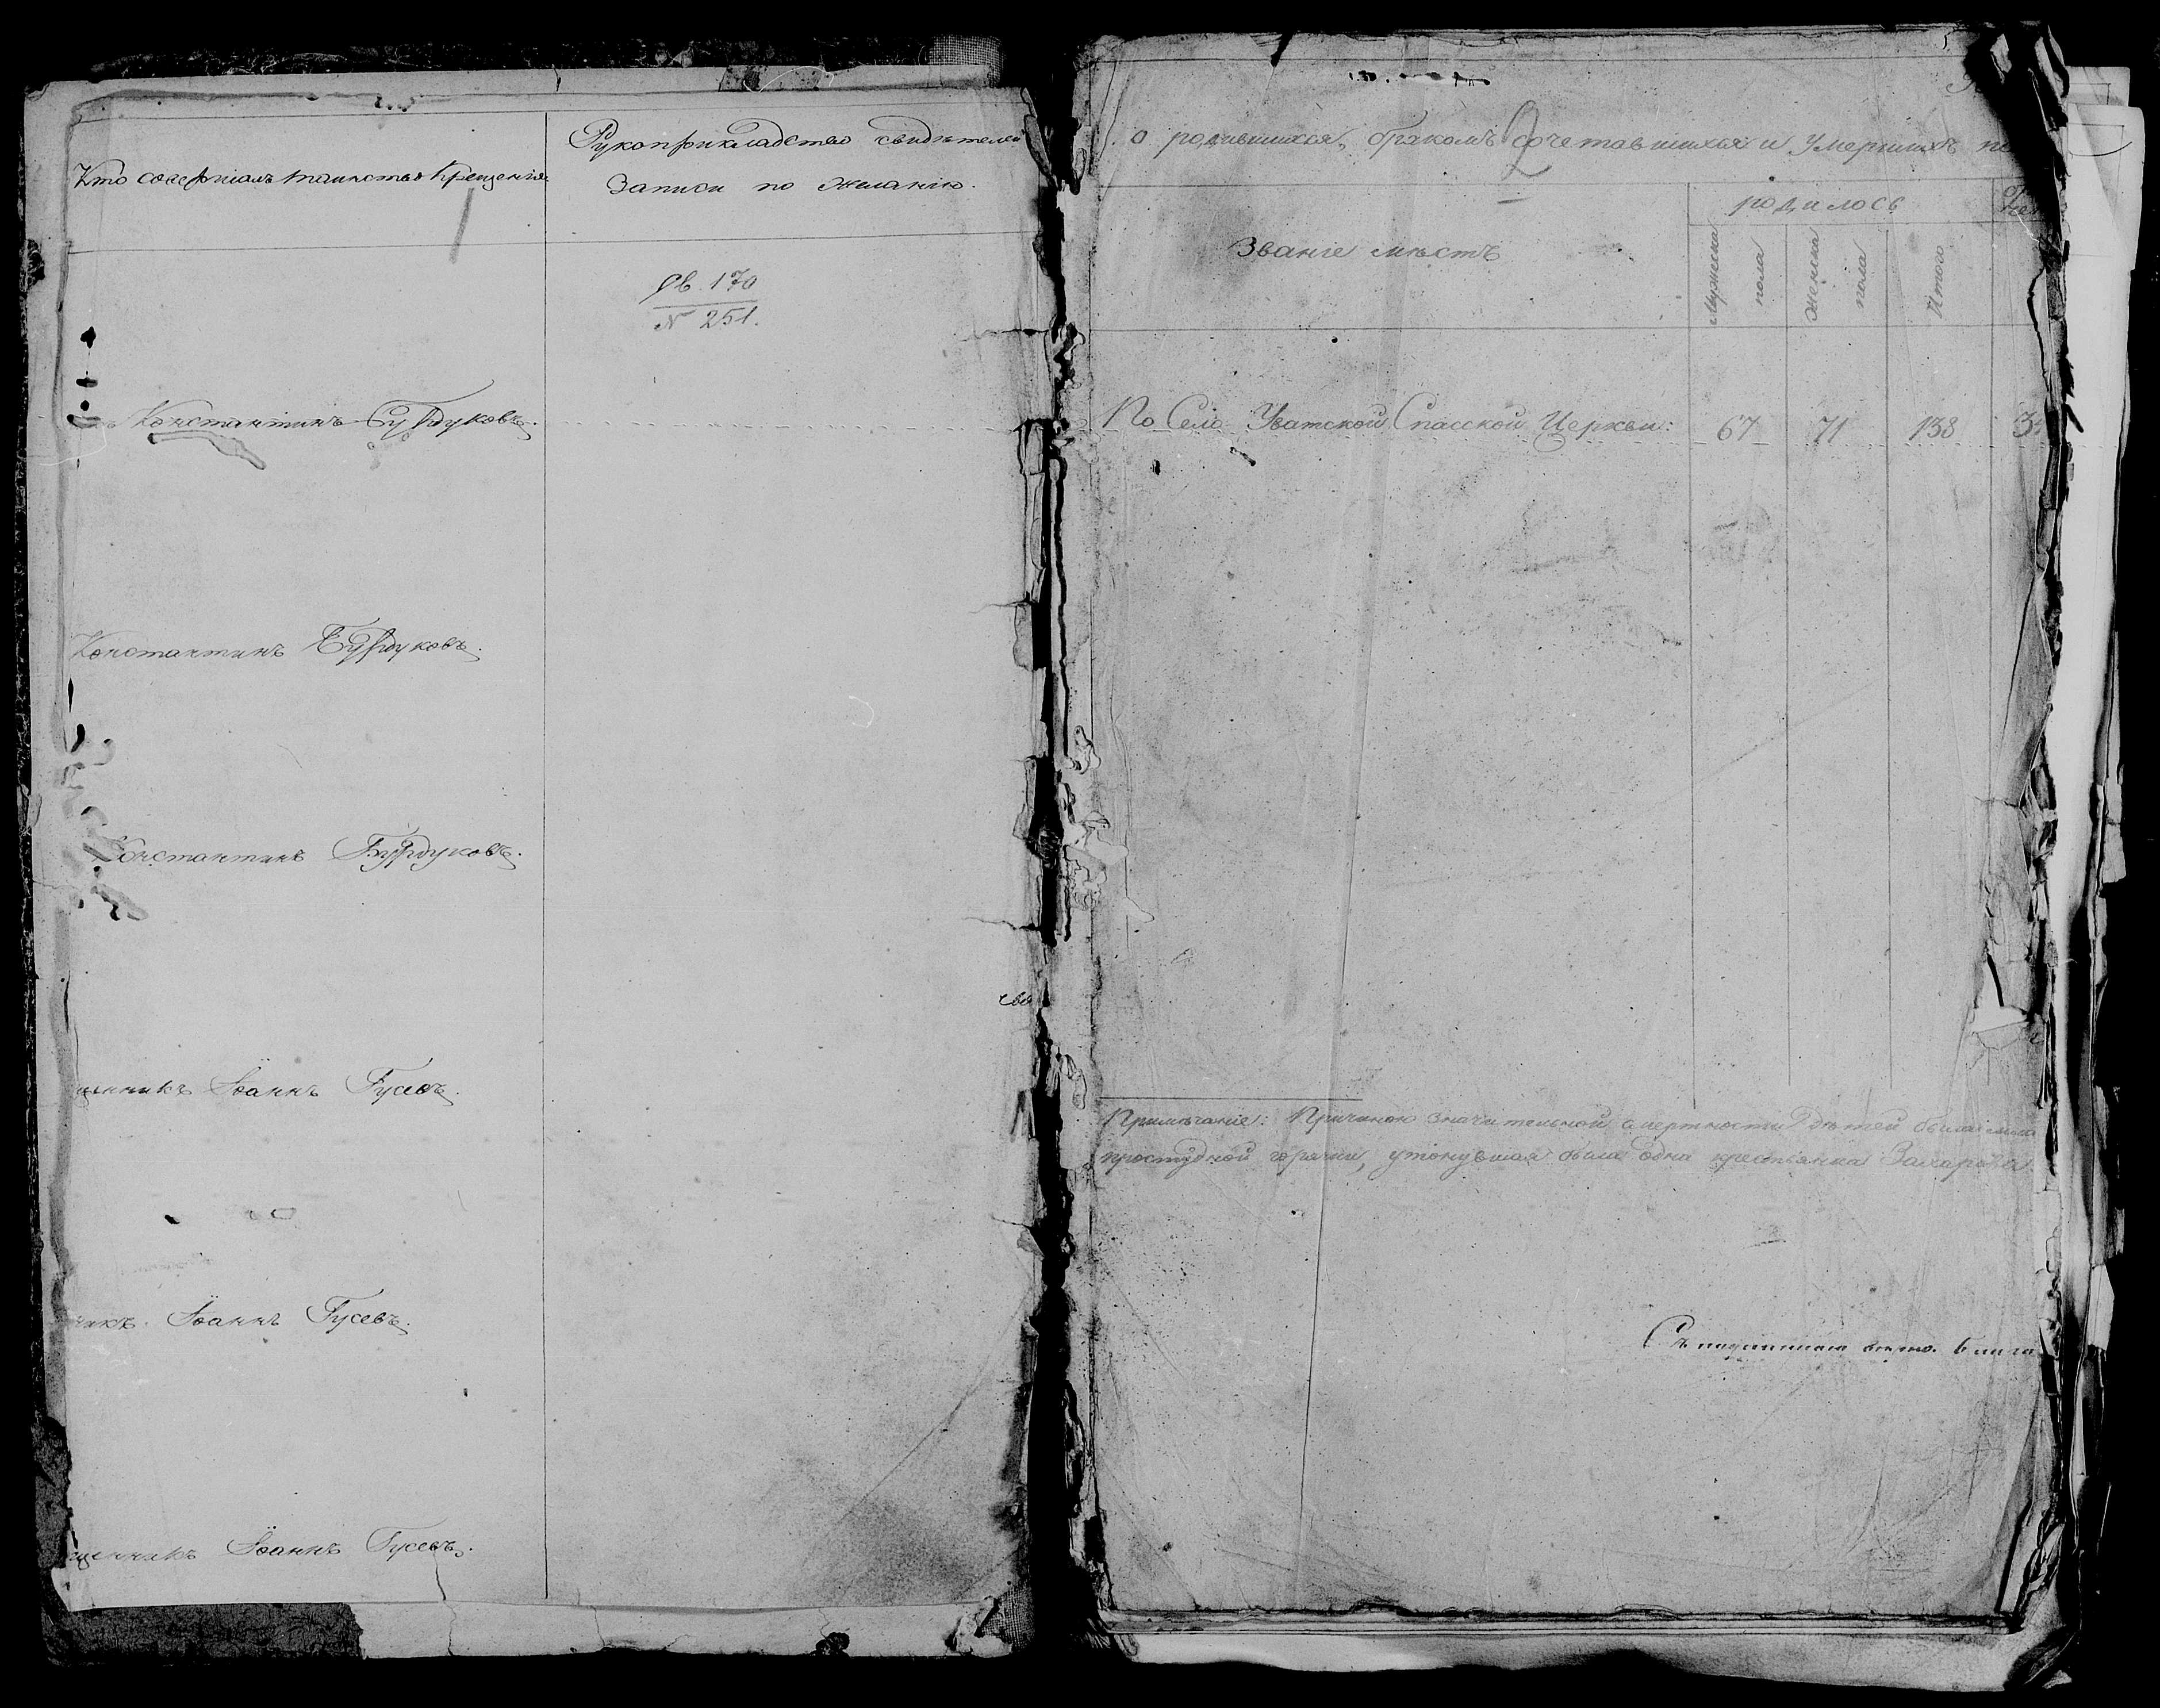 Кто совершалъ таинство крещенія
Рукоприкладство свидѣтелей
записи по желанію.
Св. 170
№ 251.
Константинъ Бурдуковъ.
Константинъ Бурдуковъ.
Константинъ Бурдуковъ.
щенникъ Іоаннъ Гусевъ.
никъ Іоаннъ Гусевъ.
щенникъ Іоаннъ Гусевъ.
о родившихся, бракомъ сочетавшихся и умершихъ по
2
Званіе мѣстъ
родилось
Мужеска пола
Женска пола
Итого
По Село Уватской Спасской Церкви: 67 71 138 3
Примѣчаніе: Причиною значительной смертности дѣтей была
простудной горячки, утонувшая была одна крестьянка Захарова